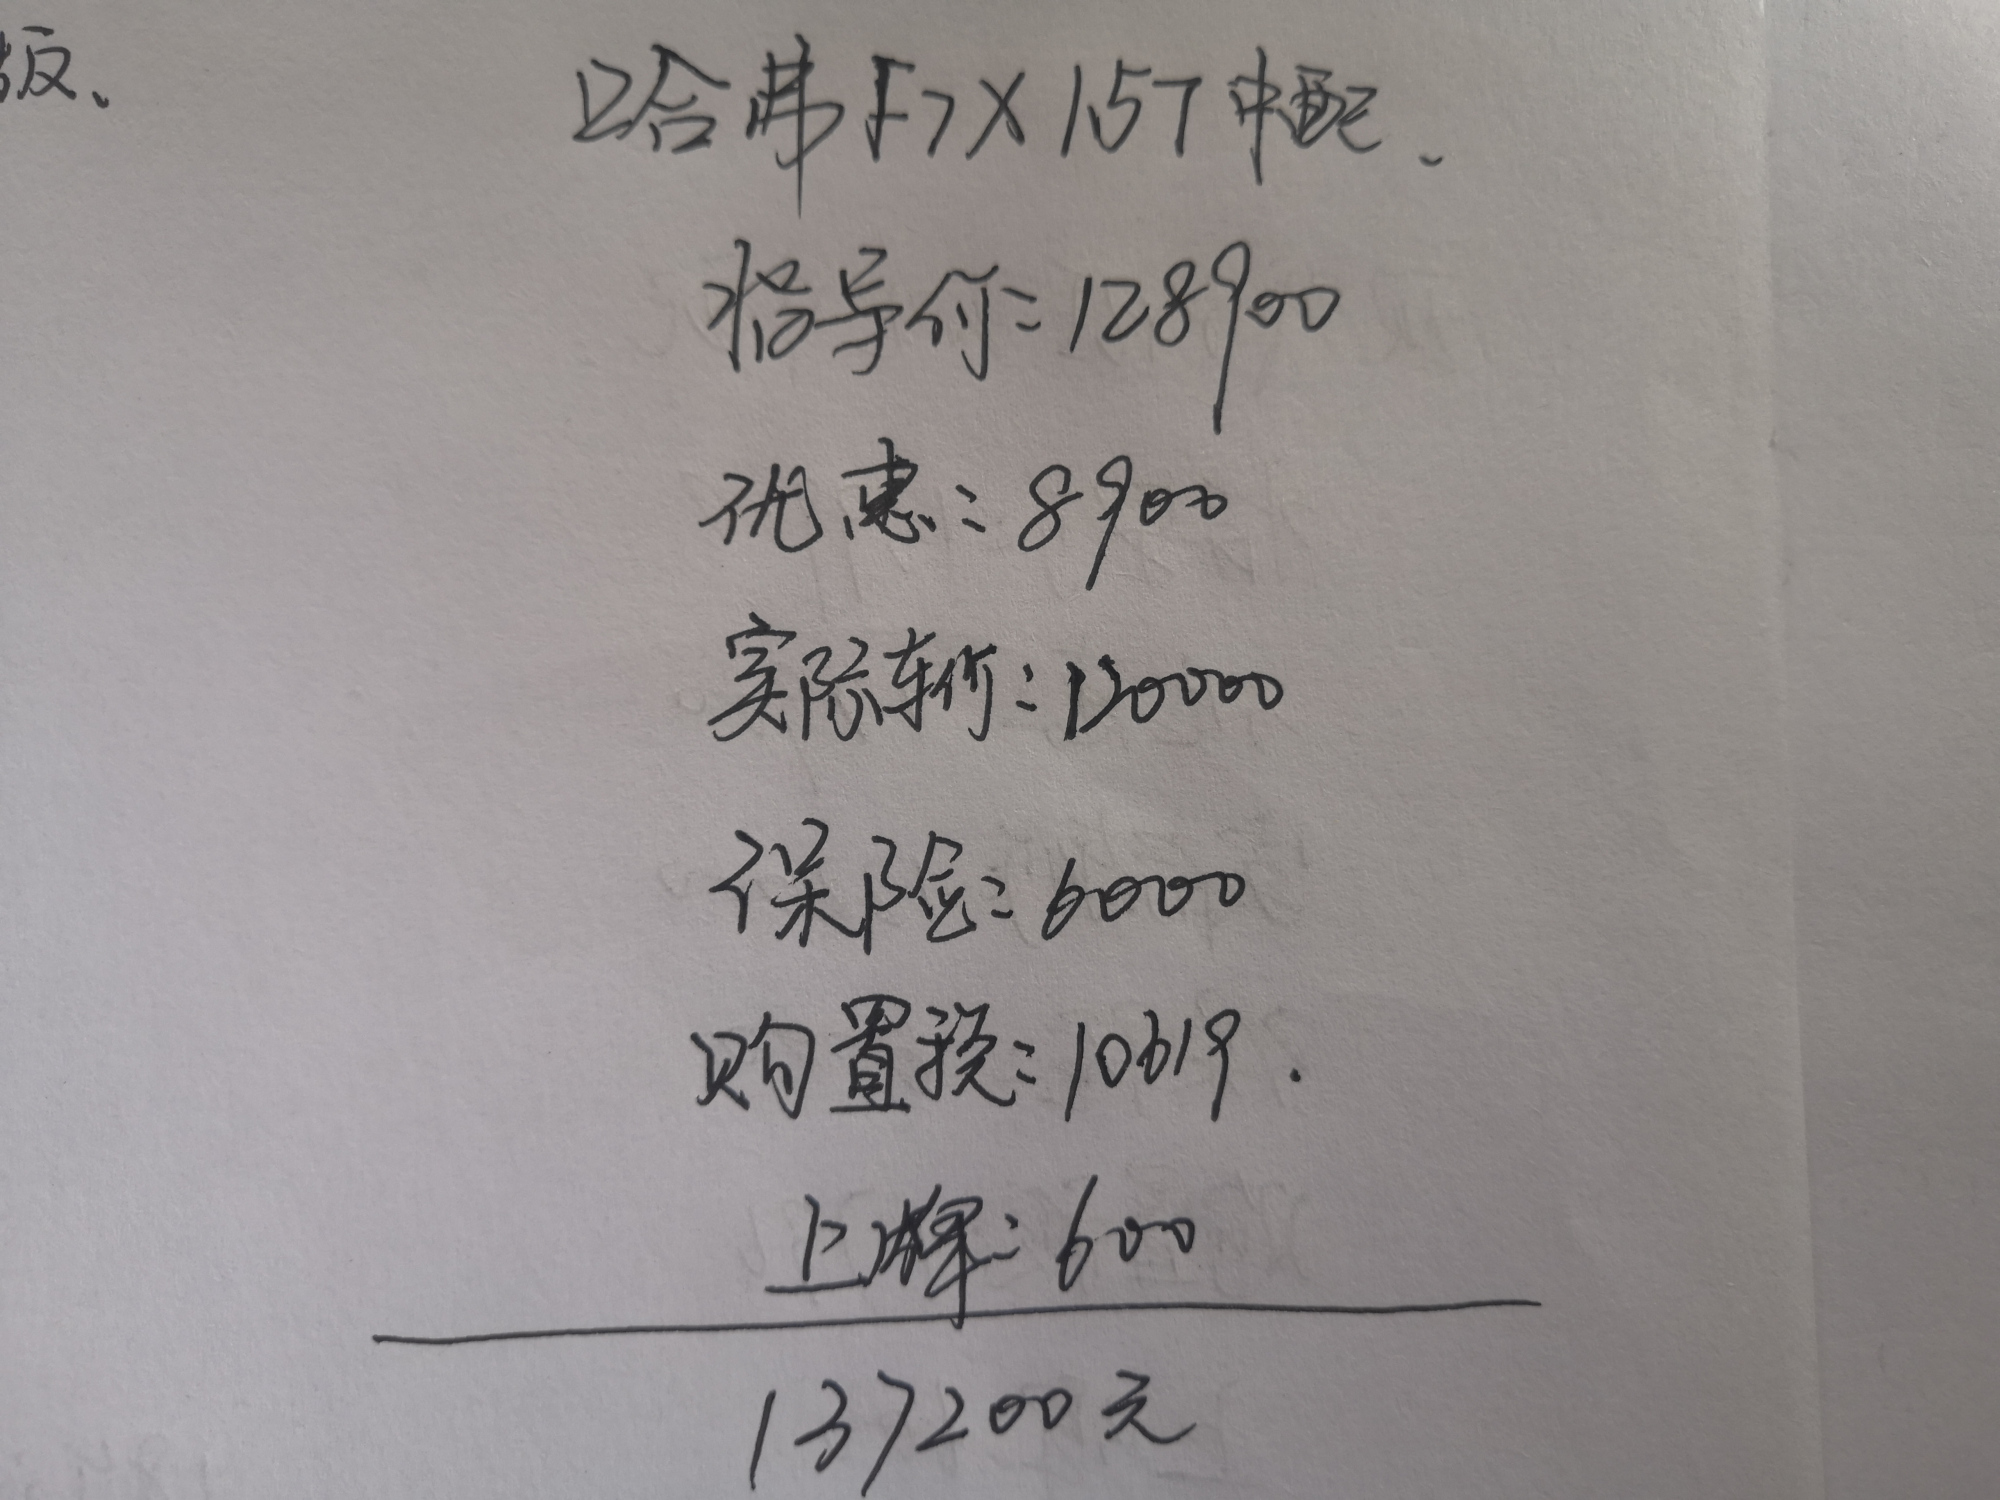 版、
哈弗F7X 1.5T中配.
指导价:128900
优惠:8900
实际车价:120000
保险:6000
购置税:10619.
上牌:600
137200元